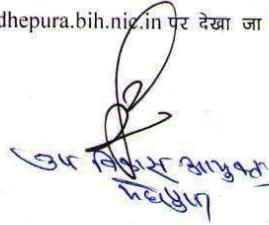 dhepura.bih.nic.in पर देखा जा
उप विकास आयुक्त
मधेपुरा